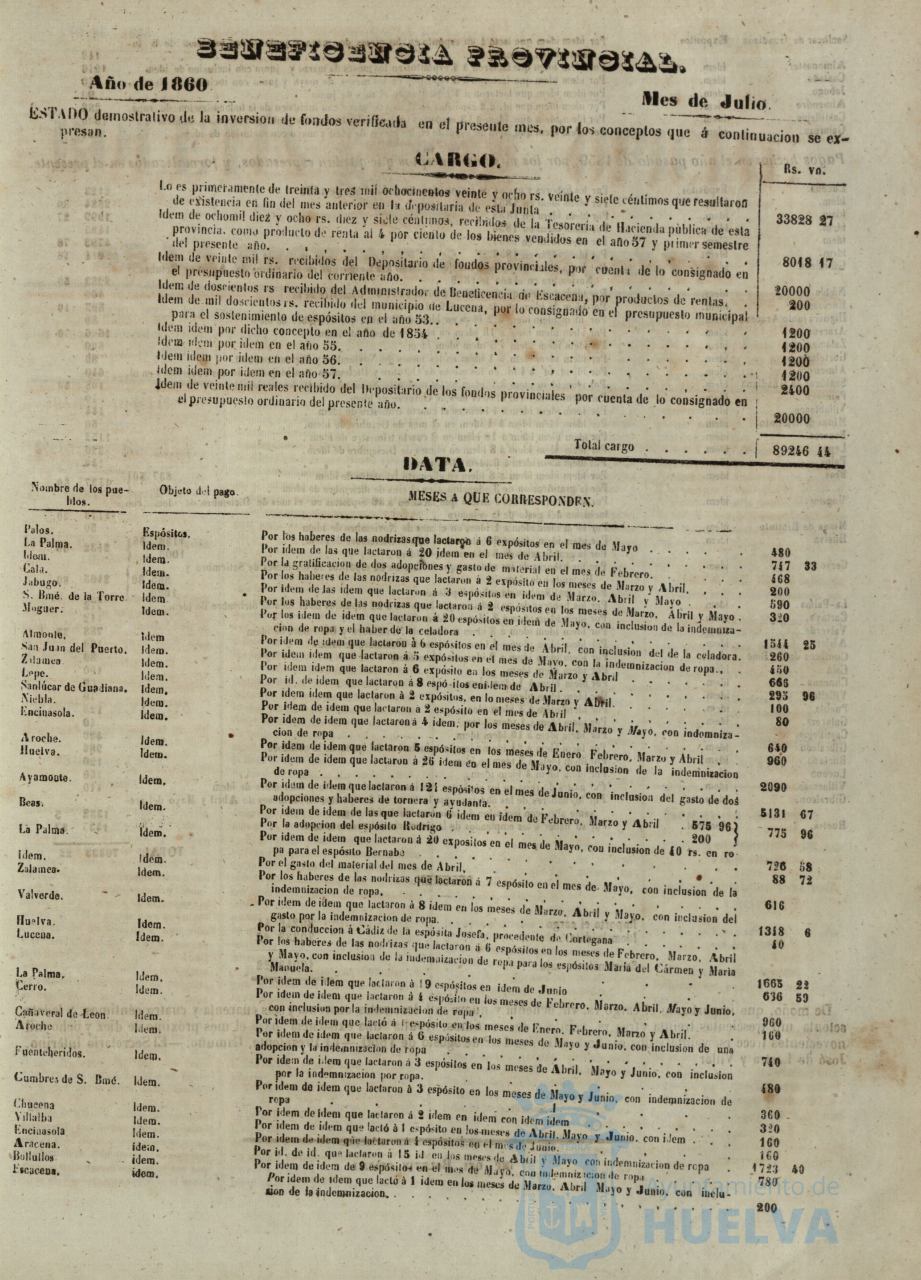 BENEFICENCIA PROVINCIAL.
Año de 1860
Mes de Julio.
ESTADO demostrativo de la inversion de fondos verificada en el presente mes, por los conceptos que á continuacion se ex-
presan.
CARGO.
Rs. vn.
Lo es primeramente de treinta y tres mil ochocientos veinte y ocho rs. veinte y siete céntimos que resultaron
de existencia en fin del mes anterior en la depositaria de esta Junta . . . 33828 27
Idem de ochomil diez y ocho rs. diez y siete céntimos, recibidos de la Tesorería de Hacienda pública de esta
provincia, como producto de renta al 4 por ciento de los bienes vendidos en el año 57 y primer semestre
del presente año. . . . 8018 17
Idem de veinte mil rs. recibidos del Depositario de fondos provinciales, por cuenta de lo consignado en
el presupuesto ordinario del corriente año. . . . 20000
Idem de doscientos rs recibido del Administrador de Beneficencia de Escacena, por productos de rentas. . 200
Idem de mil doscientos rs. recibido del municipio de Lucena, por lo consignado en el presupuesto municipal
para el sostenimiento de espósitos en el año 53. . . . 1200
Idem idem por dicho concepto en el año de 1854 . . . 1200
Idem idem por idem en el año 55. . . . 1200
Idem idem por idem en el año 56. . . . 1200
Idem idem por idem en el año 57. . . . 2400
Idem de veinte mil reales recibido del Depositario de los fondos provinciales por cuenta de lo consignado en
el presupuesto ordinario del presente año. . . . 20000
Total cargo . . . . . . 89246 44
DATA.
Nombre de los pue-
blos.
Objeto del pago.
MESES A QUE CORRESPONDEN.
Palos. Espósitos. Por los haberes de las nodrizas que lactaron á 6 expósitos en el mes de Mayo . . . 480
La Palma. Idem. Por idem de las que lactaron á 20 idem en el mes de Abril. . . . 747 33
Idem. Idem. Por la gratificacion de dos adopciones y gasto de material en el mes de Febrero. . . 468
Cala. Idem. Por los haberes de las nodrizas que lactaron á 2 expósito en los meses de Marzo y Abril. . . 200
Jabugo. Idem. Por idem de las idem que lactaron á 3 espósitos en idem de Marzo, Abril y Mayo . . 590
S. Bmé. de la Torre Idem Por los haberes de las nodrizas que lactaron á 2 espósitos en los meses de Marzo, Abril y Mayo . 320
Moguer. Idem. Por los idem de idem que lactaron á 20 espósitos en idem de Mayo, con inclusion de la indemniza-
cion de ropa y el haber de la celadora . . . 1544 25
Almonte. Idem Por idem de idem que lactaron á 6 espósitos en el mes de Abril, con inclusion del de la celadora. 260
San Juan del Puerto. Idem. Por idem idem que lactaron á 5 expósitos en el mes de Mayo, con la indemnizacion de ropa. . . 450
Zalamea Idem. Por idem idem que lactaron á 6 expósito en los meses de Marzo y Abril . . . 666
Lepe. Idem. Por id. de idem que lactaron á 8 espósitos en idem de Abril. . . . 295 96
Sanlúcar de Guadiana. Idem. Por idem idem que lactaron á 2 expósitos, en lo meses de Marzo y Abril. . . . 100
Niebla. Idem. Por idem de idem que lactaron á 2 espósito en el mes de Abril . . . 80
Encinasola. Idem. Por idem de idem que lactaron á 4 idem, por los meses de Abril, Marzo y Mayo, con indemniza-
cion de ropa . . . 640
Aroche. Idem. Por idem de idem que lactaron 5 espósitos en los meses de Enero Febrero, Marzo y Abril . . 960
Huelva. Idem. Por idem de idem que lactaron á 26 idem en el mes de Mayo, con inclusion de la indemnizacion
de ropa . . . 2090
Ayamonte. Idem. Por idem de idem que lactaron á 121 espósitos en el mes de Junio, con inclusion del gasto de dos
adopciones y haberes de tornera y ayudanta. . . . 5131 67
Beas. Idem. Por idem de idem de las que lactaron 6 idem en idem de Febrero, Marzo y Abril . 575 96}
Por la adopcion del espósito Rodrigo . . . 200 } 775 96
La Palma. Idem. Por idem de idem que lactaron á 20 expositos en el mes de Mayo, con inclusion de 40 rs. en ro
pa para el espósito Bernabe . . . 726 58
Idem. Idem. Por el gasto del material del mes de Abril. . . . 88 72
Zalamea. Idem. Por los haberes de las nodrizas que lactaron á 7 espósito en el mes de Mayo, con inclusion de la
indemnizacion de ropa. . . . 616
Valverde. Idem. Por idem de idem que lactaron á 8 idem en los meses de Marzo, Abril y Mayo, con inclusion del
gasto por la indemnizacion de ropa. . . . 1318 6
Huelva. Idem. Por la conduccion á Cádiz de la espósita Josefa, procedente de Cortegana . . . 40
Lucena. Idem. Por los haberes de las nodrizas que lactaron á 6 espósitos en los meses de Febrero, Marzo, Abril
y Mayo, con inclusion de la indemnizacion de ropa para los espósitos Maria del Cármen y Maria
Manuela. . . . 1665 22
La Palma. Idem. Por idem de idem que lactaron á 19 espósitos en idem de Junio . . . 636 59
Cerro. Idem. Por idem de idem que lactaron á 4 espósito en los meses de Febrero, Marzo, Abril, Mayo y Junio,
con inclusion por la indemnizacion de ropa . . . 960
Cañaveral de Leon Idem. Por idem de idem que lactó á 1 espósito en los meses de Enero, Febrero, Marzo y Abril. . . 160
Aroche Idem. Por idem de idem que lactaron á 6 espósitos en los meses de Mayo y Junio, con inclusion de una
adopcion y la indemnizacion de ropa . . . 740
Fuenteheridos. Idem. Por idem de idem que lactaron á 3 espósitos en los meses de Abril, Mayo y Junio, con inclusion
por la indemnizacion por ropa. . . . 480
Cumbres de S. Bmé. Idem. Por idem de idem que lactaron á 3 espósito en los meses de Mayo y Junio, con indemnizacion de
ropa . . . 360
Chucena Idem. Por idem de idem que lactaron á 2 idem en idem con idem idem . . . 320
Villalba Idem. Por idem de idem que lactó á 1 espósito en los meses de Abril, Mayo y Junio, con idem . . 160
Encinasola Idem. Por idem de idem que lactaron á 4 espósitos en el mes de Junio. . . . 160
Aracena. Idem. Por id. de id. que lactaron á 15 id en los meses de Abril y Mayo con indemnizacion de ropa . 1723 40
Bollullos Idem. Por idem de idem de 9 espósitos en el mes de Mayo, con indemnizacion de ropa . . . 780
Escacena. Idem. Por idem de idem que lactó á 1 idem en los meses de Marzo, Abril Mayo y Junio, con inclu-
sion de la indemnizacion. . . . 200
Ayuntamiento de
HUELVA